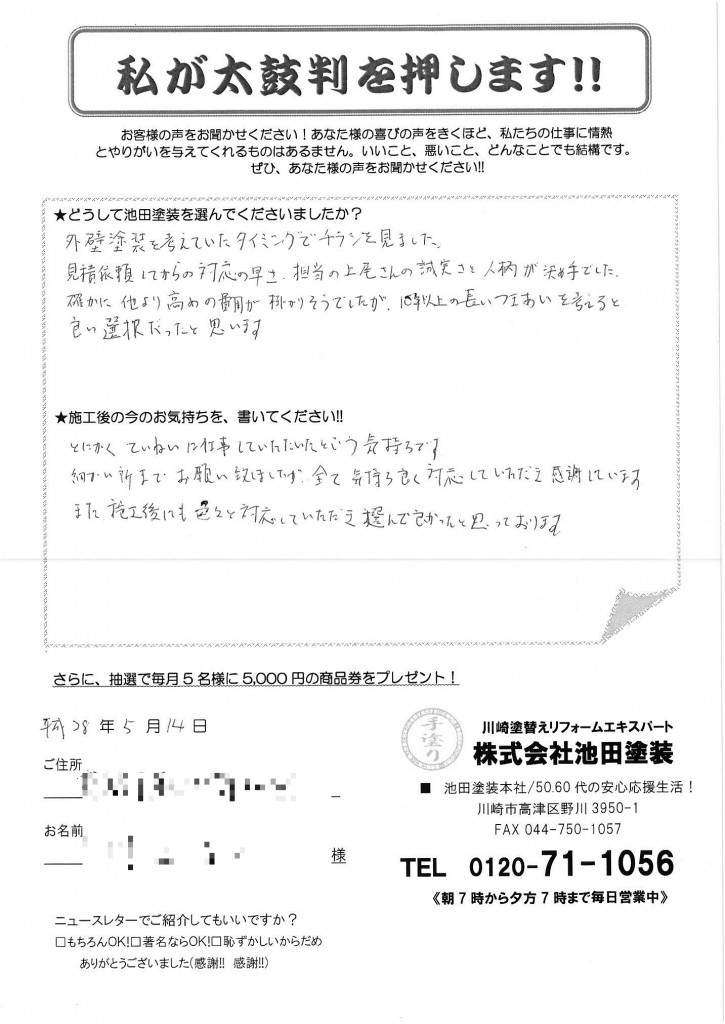 私が太鼓判を押します!!
お客様の声をお聞かせください！あなた様の喜びの声をきくほど、私たちの仕事に情熱
とやりがいを与えてくれるものはあるません。いいこと、悪いこと、どんなことでも結構です。
ぜひ、あなた様の声をお聞かせください!!
★どうして池田塗装を選んでくださいましたか？
外壁塗装を考えていたタイミングでチラシを見ました。
見積依頼してからの対応の早さ、担当の上尾さんの誠実さと人柄が決め手でした。
確かに他より高めの費用が掛かりそうでしたが、10年以上の長いつきあいを考えると
良い選択だったと思います
★施工後の今のお気持ちを、書いてください!!
とにかくていねいに仕事していただいたという気持ちです
細かい所までお願い致しましたが、全て気持ち良く対応していただき感謝しています
また施工後にも色々と対応していただき選んで良かったと思っております
さらに、抽選で毎月5名様に5,000円の商品券をプレゼント！
平成28年5月14日
ご住所
お名前
様
ニュースレターでご紹介してもいいですか？
□もちろんOK!□著名ならOK!□恥ずかしいからだめ
ありがとうございました(感謝!! 感謝!!)
手塗り
川崎塗替えリフォームエキスパート
株式会社池田塗装
■ 池田塗装本社/50.60代の安心応援生活！
川崎市高津区野川3950-1
FAX 044-750-1057
TEL 0120-71-1056
《朝7時から夕方7時まで毎日営業中》